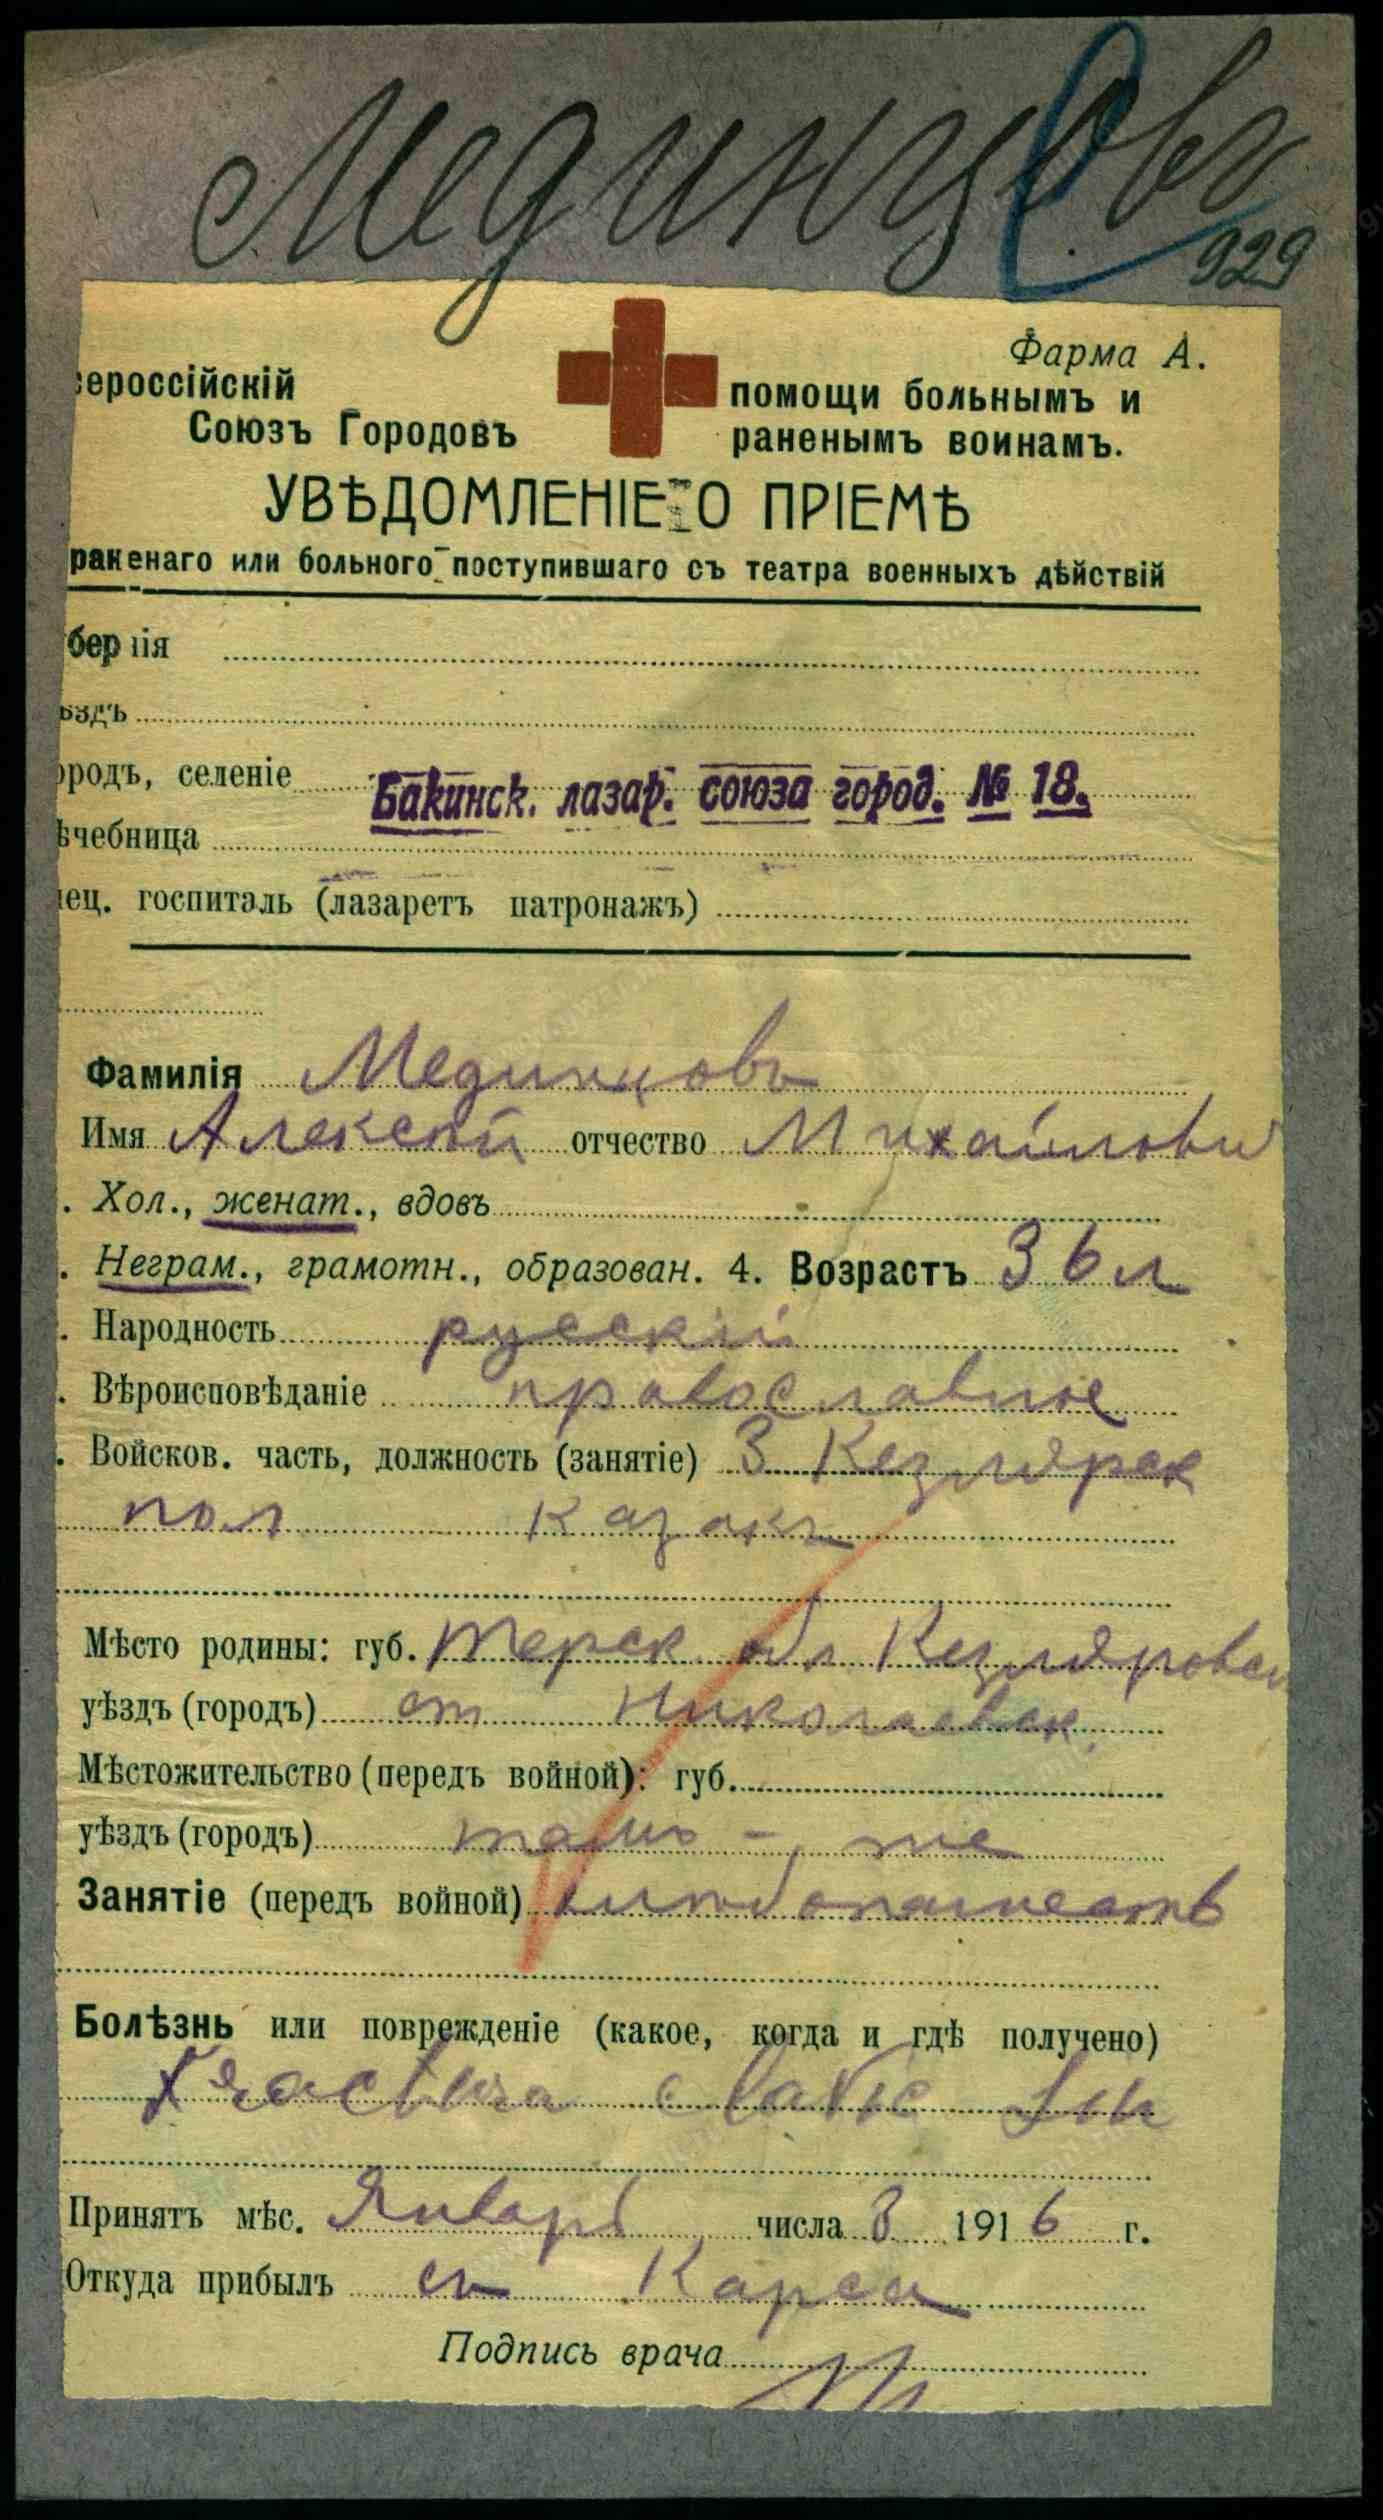 Мединцовъ
929
Фарма А.
сероссійскій
Союзъ Городовъ
помощи больнымъ и
раненымъ воинамъ.
УВѢДОМЛЕНІЕ О ПРІЕМѢ
раненаго или больного поступившаго съ театра военныхъ дѣйствій
бернія
ѣздъ
ородъ, селеніе
Бакинск. лазар. союза город. № 18.
ѣчебница
ец. госпиталь (лазаретъ патронажъ)
Фамилія Мединцовъ
Имя Алексѣй отчество Михайлови
. Хол., женат., вдовъ
. Неграм., грамотн., образован. 4. Возрастъ 36 л
. Народность русскій
. Вѣроисповѣданіе православное
. Войсков. часть, должность (занятіе) 3 Кезлярск
пол казакъ
Мѣсто родины: губ. Терск обл Кезляровск
уѣздъ (городъ) ст Николаевск.
Мѣстожительство (передъ войной): губ.
уѣздъ (городъ) тамъ-же
Занятіе (передъ войной) хлѣбопашеств
Болѣзнь или поврежденіе (какое, когда и гдѣ получено)
Принятъ мѣс. Январь числа 3 1916 г.
Откуда прибылъ съ Карса
Подпись врача